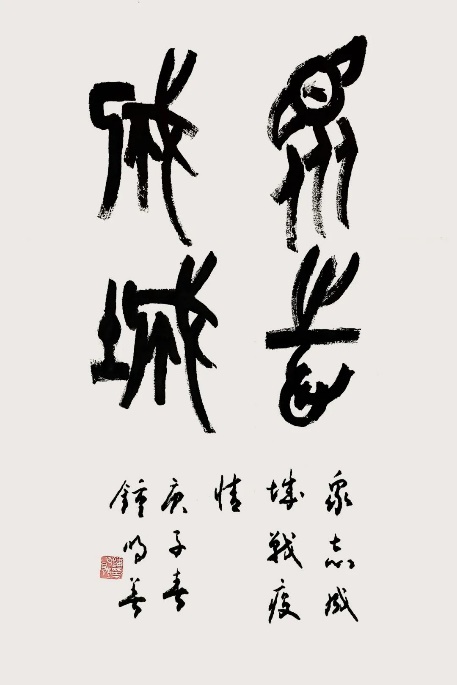 眾志
成城
眾志成
城戰疫
情
庚子春
鍾明善